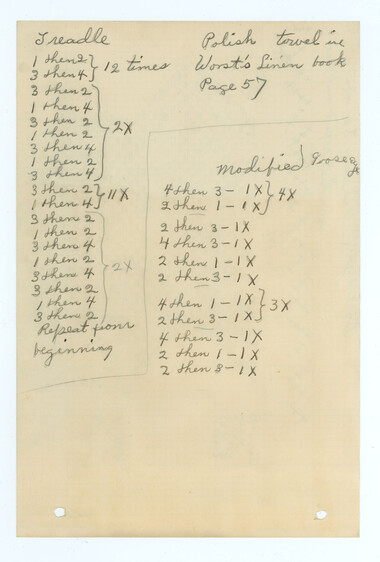 Treadle
1 then 2
3 then 4
12 times
3 then 2
1 then 4
3 then 2
1 then 2
3 then 4
1 then 2
3 then 4
2X
3 then 2
1 then 4
11X
3 then 2
1 then 2
3 then 4
1 then 2
3 then 4
3 then 2
1 then 4
3 then 2
2X
Repeat from
beginning
Polish towel in
Worst's Linen book
Page 57
Modified
4 then 3 - 1X
2 then 1 - 1X
4X
2 then 3 - 1X
4 then 3 - 1X
2 then 1 - 1X
2 then 3 - 1X
4 then 1 - 1X
2 then 3 - 1X
3X
4 then 3 - 1X
2 then 1 - 1X
2 then 3 - 1X